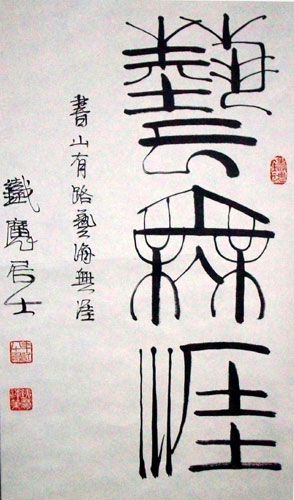 藝無涯
書山有路藝海無涯
鐵居士